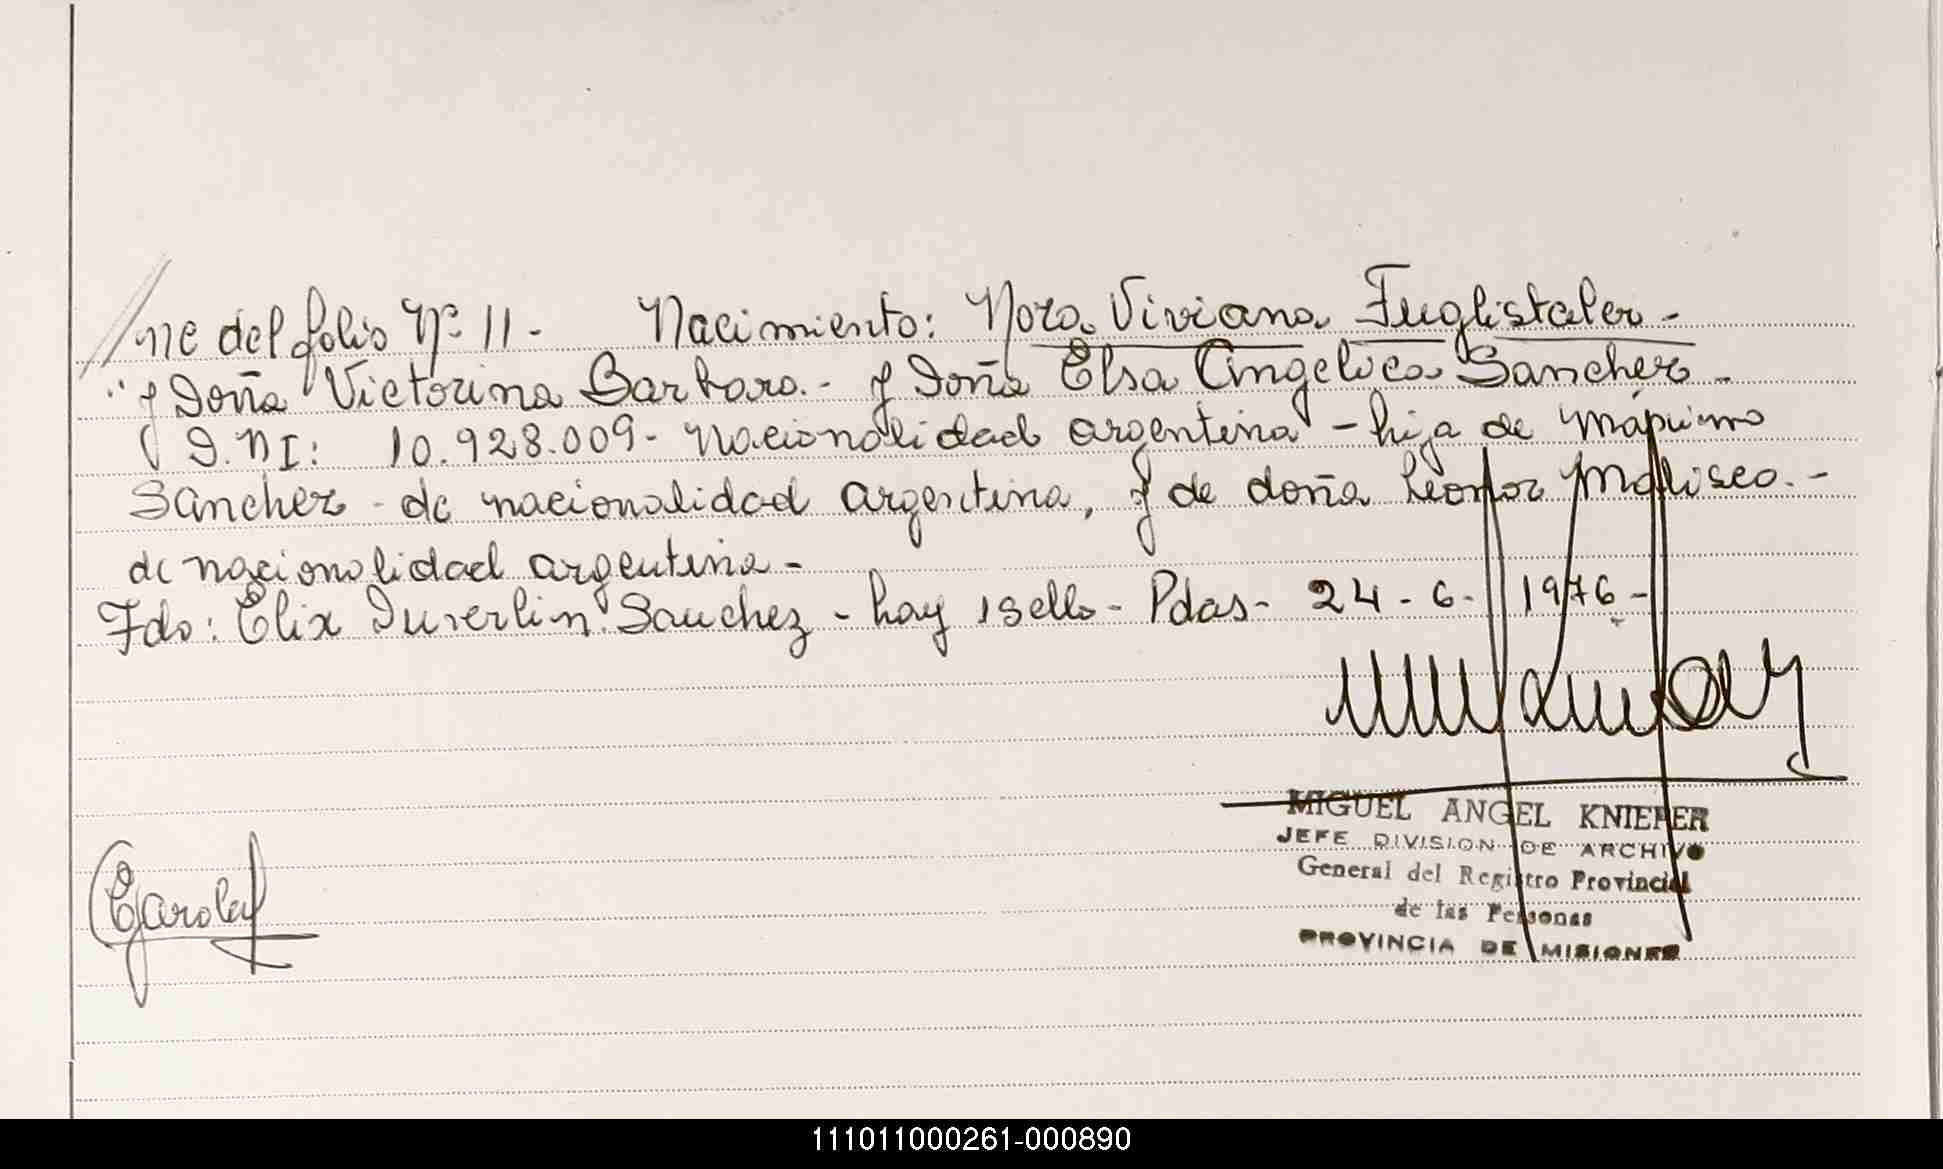 //ne del folio Nº 11 - Nacimiento: Nora Viviana Fuglistaler -
"y Doña Victorina Barbaro.- y Doña Elsa Angelica Sanchez -
D.N.I: 10.928.009- nacionalidad argentina - hija de Máximo
Sanchez - de nacionalidad argentina, y de doña Leonor .-
de nacionalidad argentina -
Fdo: Elix Duverlin Sanchez - hay 1 sello - Pdas- 24 - 6 - 1976 -
MIGUEL ANGEL KNIEPER
JEFE DIVISION DE ARCHIVO
General del Registro Provincial
de las Personas
PROVINCIA DE MISIONES
111011000261-000890